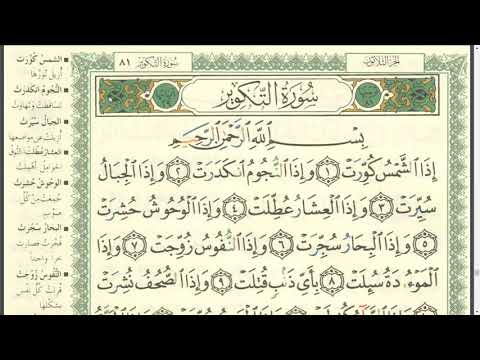 الجزء الثلاثون
سورة التكوير ٨١
سُورَةُ التَّكْوِيرِ
بِسْمِ ٱللَّهِ ٱلرَّحْمَٰنِ ٱلرَّحِيمِ
إِذَا ٱلشَّمْسُ كُوِّرَتْ ١ وَإِذَا ٱلنُّجُومُ ٱنكَدَرَتْ ٢ وَإِذَا ٱلْجِبَالُ
سُيِّرَتْ ٣ وَإِذَا ٱلْعِشَارُ عُطِّلَتْ ٤ وَإِذَا ٱلْوُحُوشُ حُشِرَتْ
٥ وَإِذَا ٱلْبِحَارُ سُجِّرَتْ ٦ وَإِذَا ٱلنُّفُوسُ زُوِّجَتْ ٧ وَإِذَا
ٱلْمَوْءُۥدَةُ سُئِلَتْ ٨ بِأَىِّ ذَنۢبٍ قُتِلَتْ ٩ وَإِذَا ٱلصُّحُفُ نُشِرَتْ
الشمس كورت
أزيل نورها
النجوم انكدرت
تساقطت وتهاوت
الجبال سيرت
أزيلت عن مواضعها
العشار عطلت النوق
الحوامل أهملت
الوحوش حشرت
جمعت من كل
صوب
البحار سجرت
فجرت فصارت
بحرا واحدا
النفوس زوجت
قرنت كل نفس
بشكلها